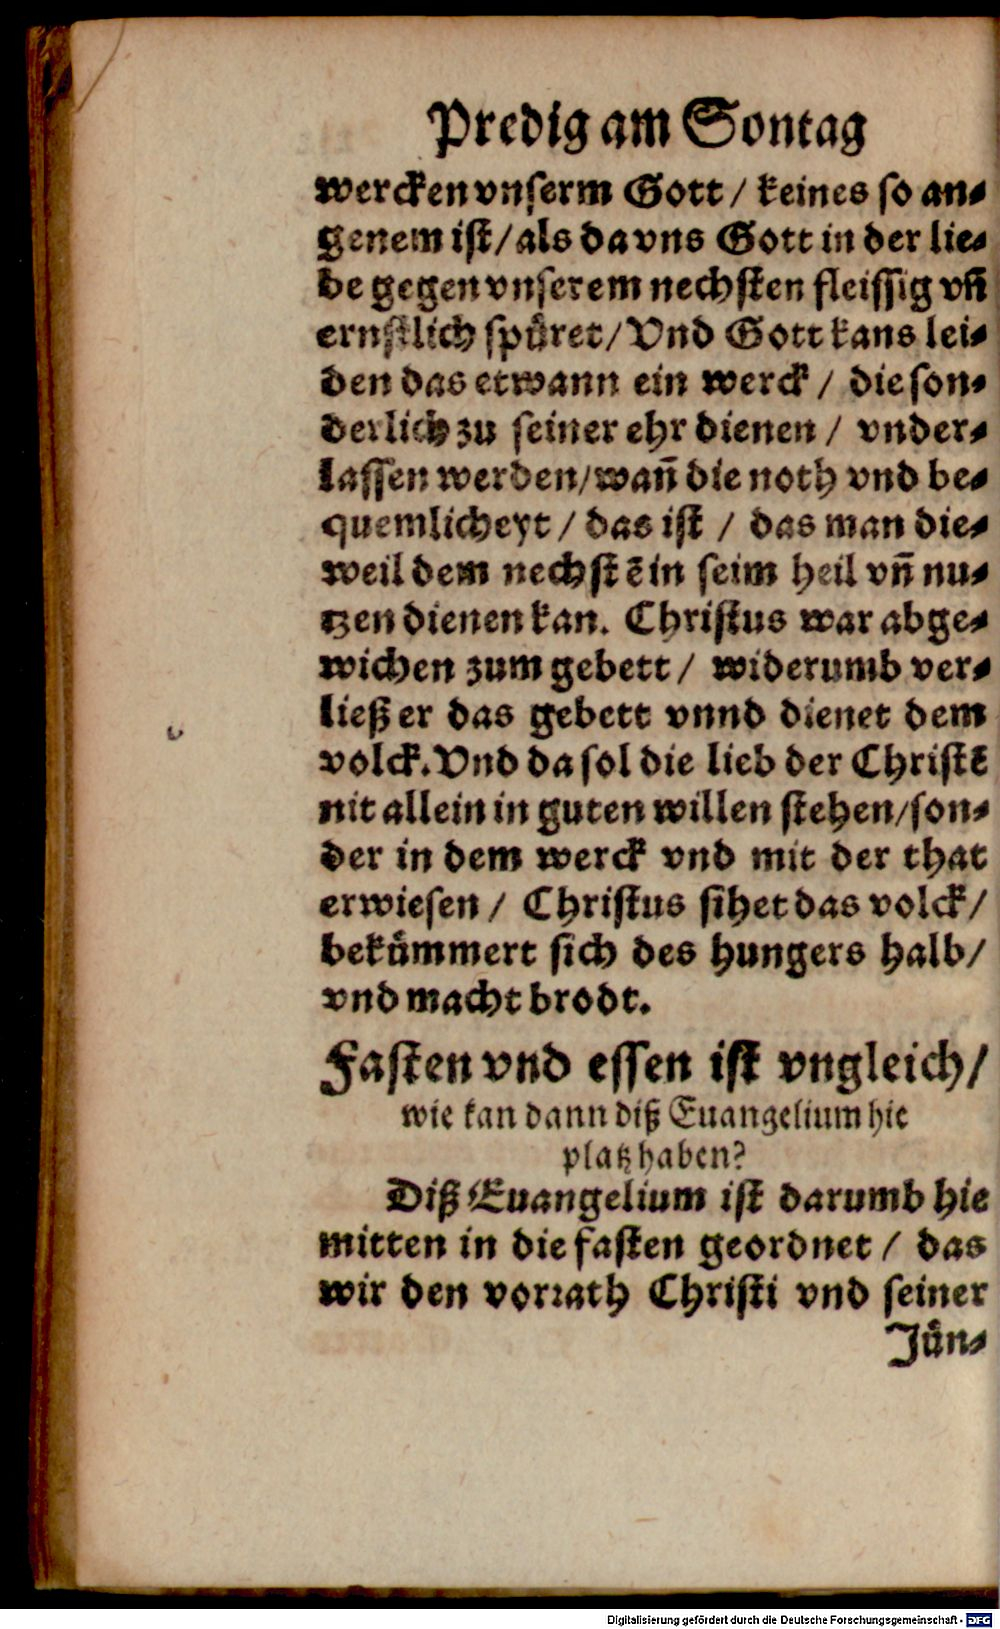 Predig am Sontag
wercken vnserm Gott / keines so an-
genem ist / als da vns Gott in der lie-
be gegen vnserem nechsten fleissig vn̄
ernstlich spuͤret / Vnd Gott kans lei-
den das etwann ein werck / die son-
derlich zu seiner ehr dienen / vnder-
lassen werden / wan̄ die noth vnd be-
quemlicheyt / das ist / das man die-
weil dem nechstē in seim heil vn̄ nu-
tzen dienen kan. Christus war abge-
wichen zum gebett / widerumb ver-
ließ er das gebett vnnd dienet dem
volck. Vnd da sol die lieb der Christē
nit allein in guten willen stehen / son-
der in dem werck vnd mit der that
erwiesen / Christus sihet das volck /
bekuͤmmert sich des hungers halb /
vnd macht brodt.
Fasten vnd essen ist vngleich /
wie kan dann diß Euangelium hie
platz haben?
Diß Euangelium ist darumb hie
mitten in die fasten geordnet / das
wir den vorrath Christi vnd seiner
Juͤn-
Digitalisierung gefördert durch die Deutsche Forschungsgemeinschaft - DFG